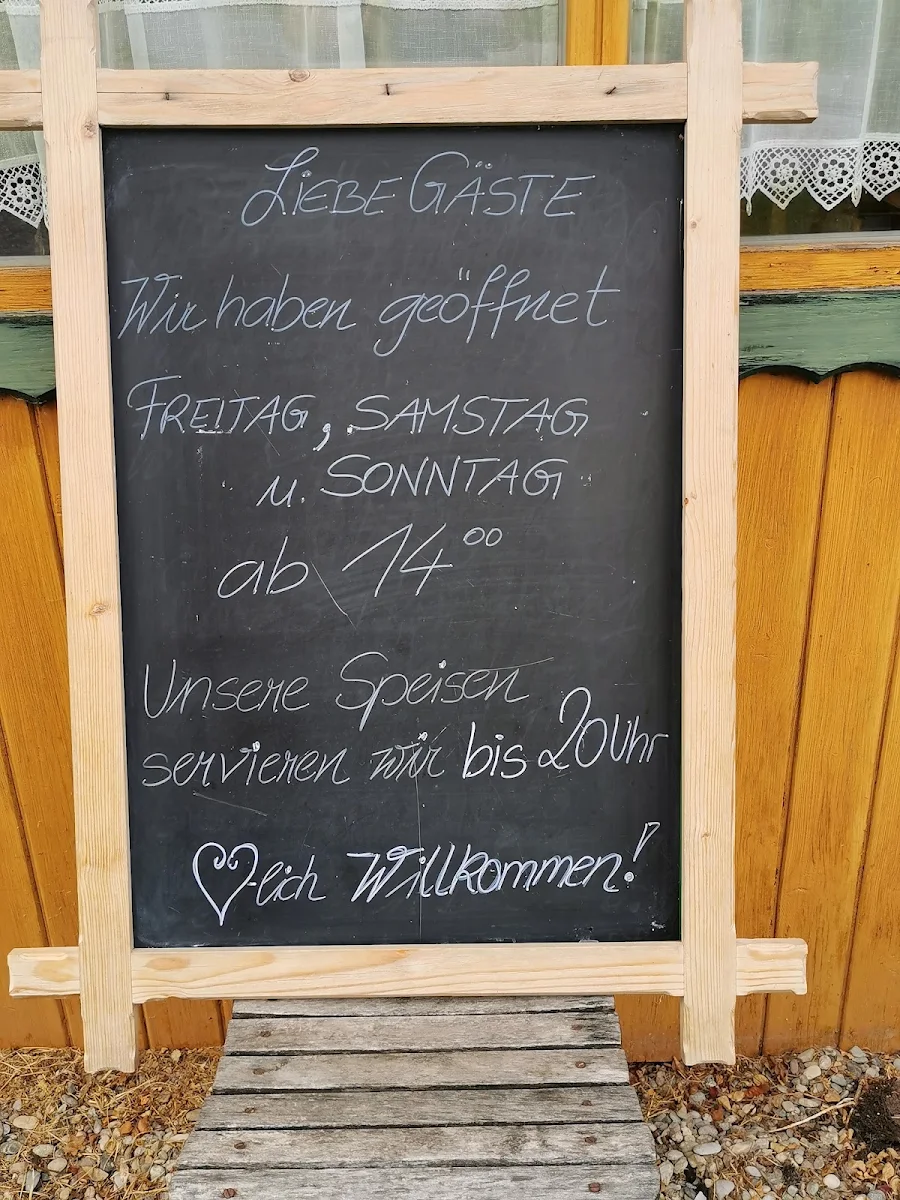 LIEBE GÄSTE
Wir haben geöffnet
FREITAG, SAMSTAG
u. SONNTAG
ab 14⁰⁰
Unsere Speisen
servieren wir bis 20Uhr
♡-lich Willkommen!